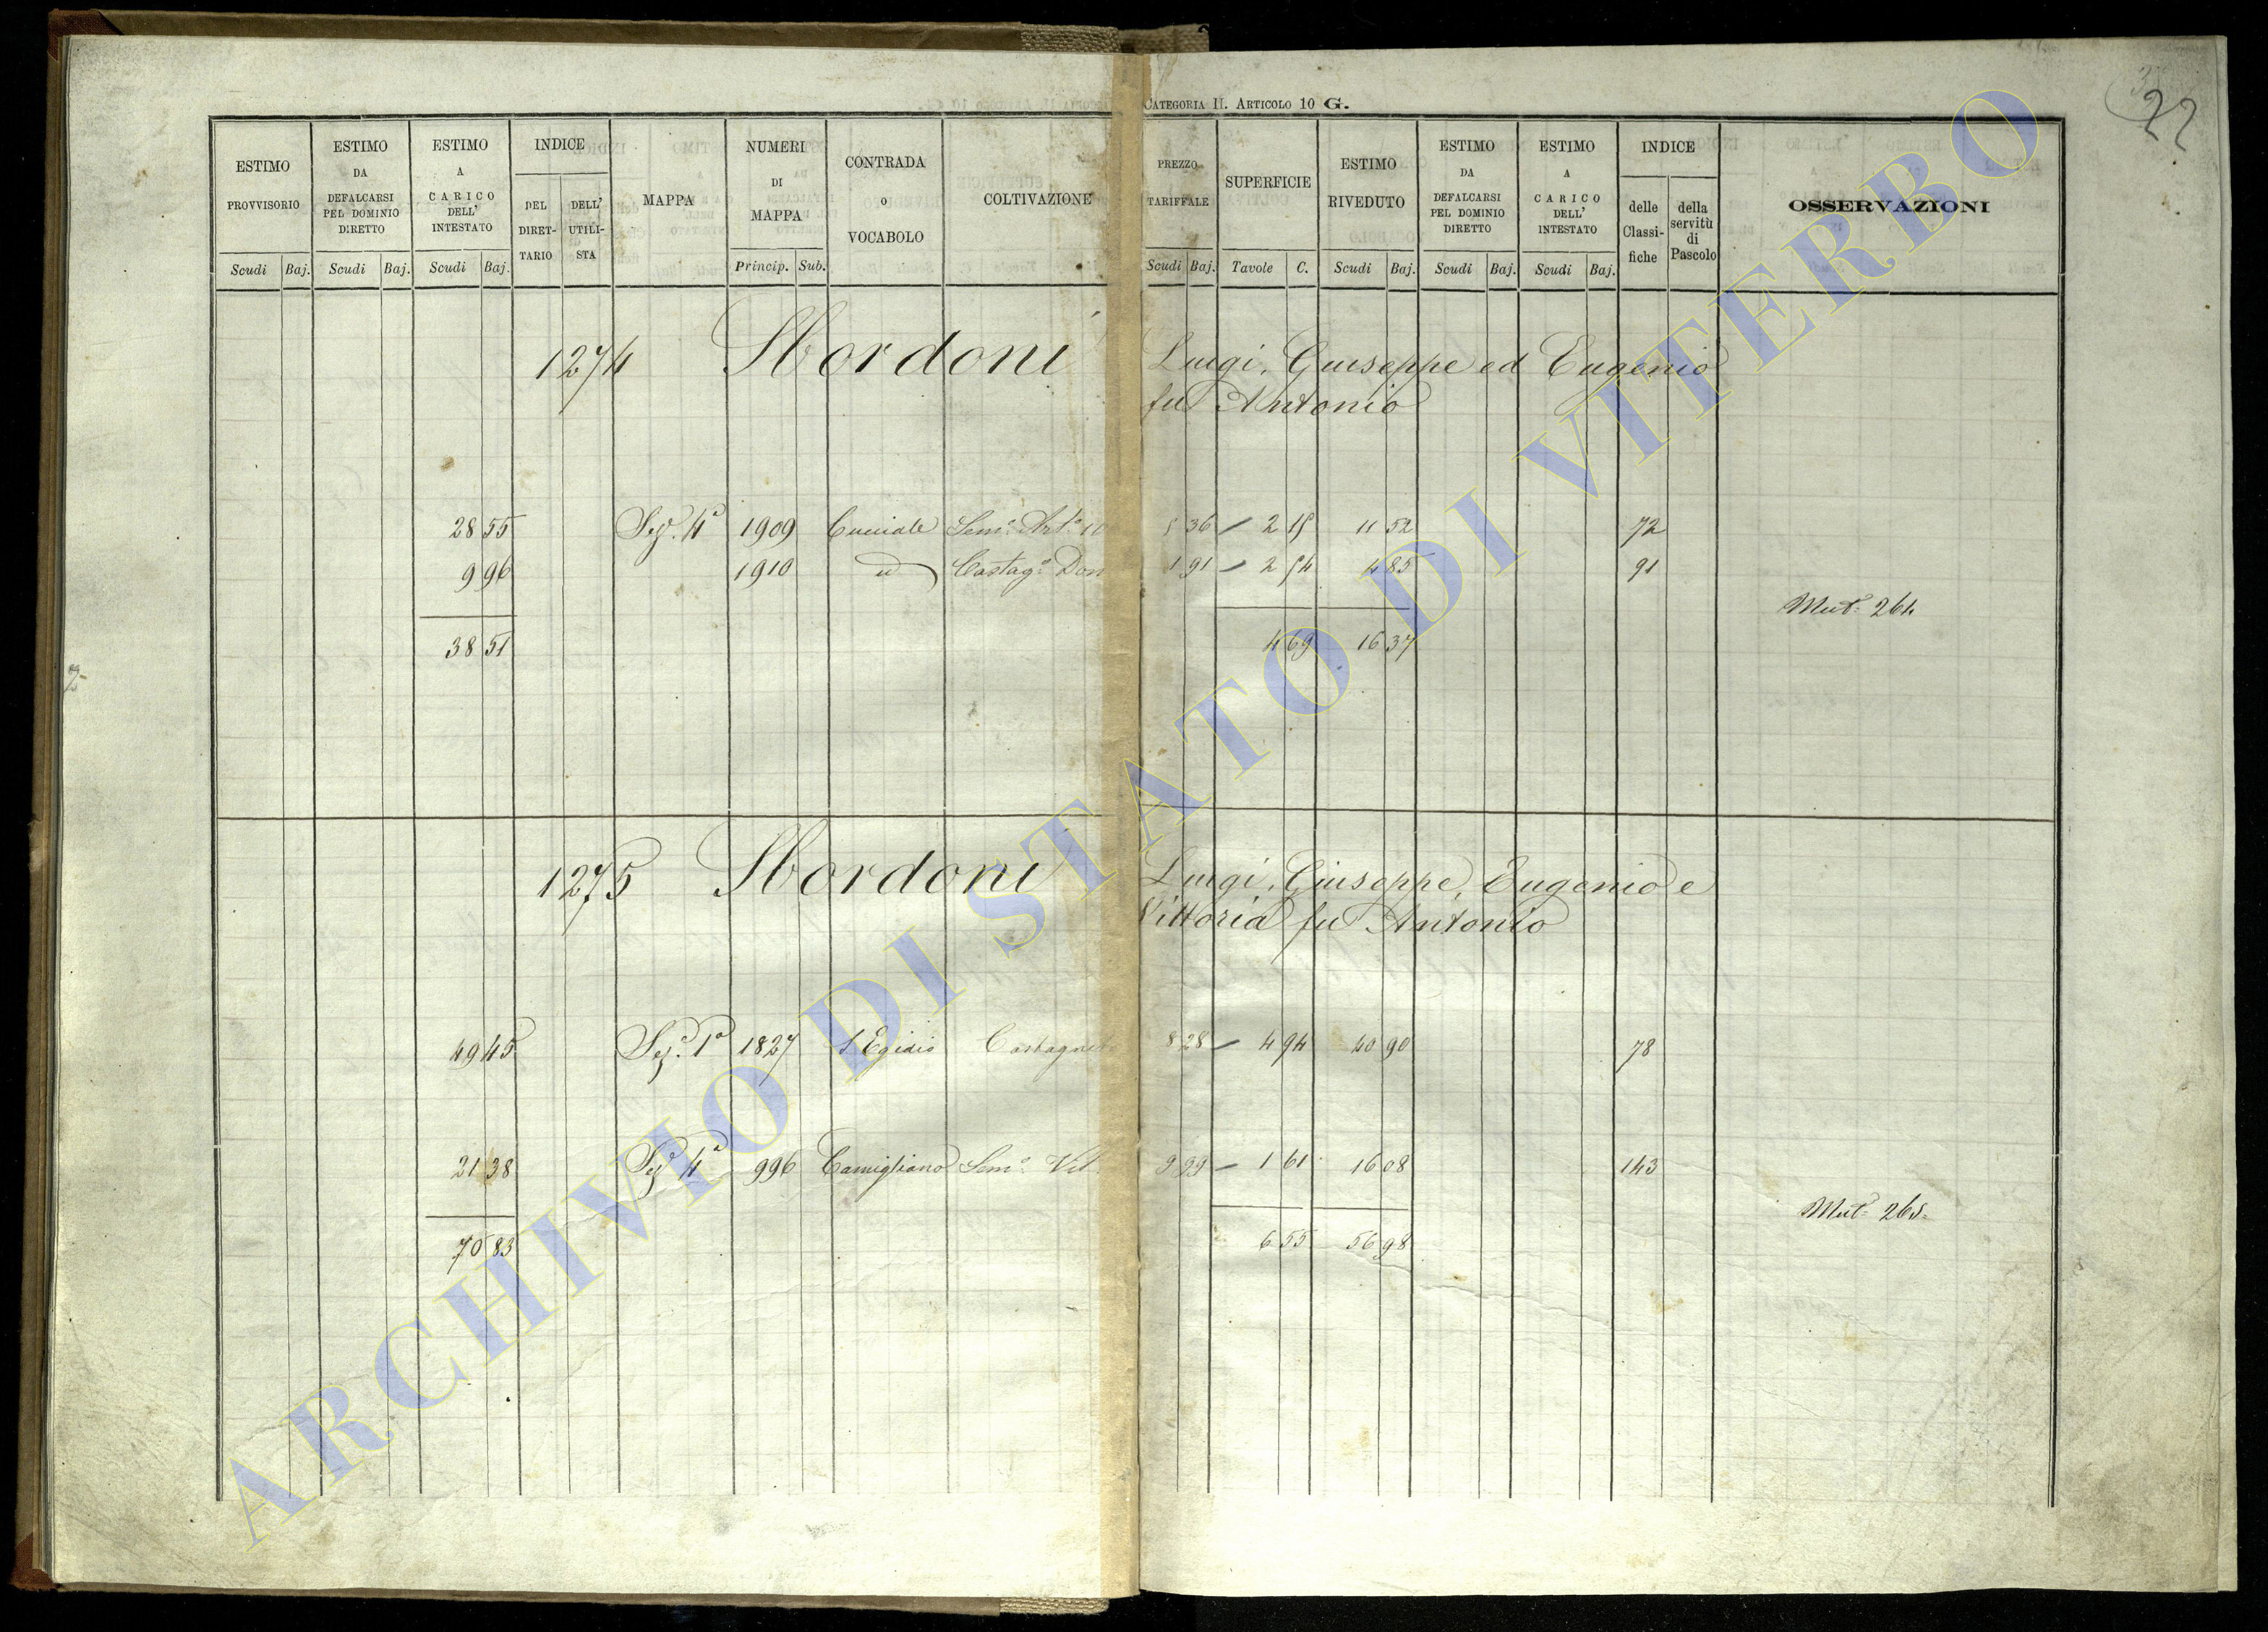 CATEGORIA II. ARTICOLO 10 G.
22
ESTIMO PROVVISORIO Scudi Baj.
ESTIMO DA DEFALCARSI PEL DOMINIO DIRETTO Scudi Baj.
ESTIMO A CARICO DELL' INTESTATO Scudi Baj.
INDICE DEL DIRET-TARIO DELL' UTILI-STA
MAPPA
NUMERI DI MAPPA Princip. Sub.
CONTRADA O VOCABOLO
COLTIVAZIONE
PREZZO TARIFFALE Scudi Baj.
SUPERFICIE Tavole C.
ESTIMO RIVEDUTO Scudi Baj.
ESTIMO DA DEFALCARSI PEL DOMINIO DIRETTO Scudi Baj.
ESTIMO A CARICO DELL' INTESTATO Scudi Baj.
INDICE delle Classi-fiche della servitù di Pascolo
OSSERVAZIONI
1274 Sbordoni Luigi, Giuseppe ed Eugenio
fu Antonio
28 55 Sez. 4a 1909 Semo Arto 5 36 2 15 11 52 72
9 96 1910 id Castago 1 91 2 54 4 85 91
Mut. 264
38 51 4 69 16 37
1275 Sbordoni Luigi, Giuseppe, Eugenio e
Vittoria fu Antonio
49 45 Seza 1a 1827 S Egidio Castagneto 8 28 4 94 40 90 78
21 38 Sez 4a 996 Camigliano Semo Vit. 9 99 1 61 16 08 143
Mut. 265
70 83 6 55 56 98
ARCHIVIO DI STATO DI VITERBO